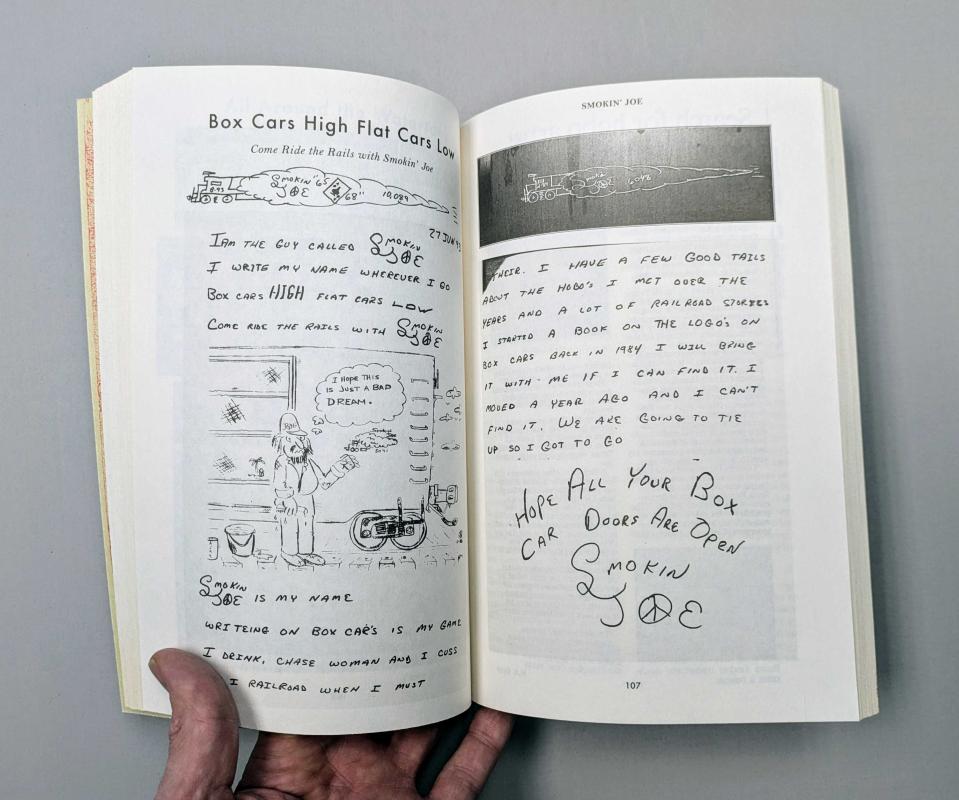 Box Cars High Flat Cars Low
Come Ride the Rails with Smokin' Joe
8-93
SMOKIN "65
JOE 68" 10,089
27 JUN 93
I AM THE GUY CALLED SMOKIN JOE
I WRITE MY NAME WHEREVER I GO
BOX CARS HIGH FLAT CARS LOW
COME RIDE THE RAILS WITH SMOKIN JOE
I HOPE THIS
IS JUST A BAD
DREAM.
SMOKIN JOE IS MY NAME
WRITEING ON BOX CAR'S IS MY GAME
I DRINK, CHASE WOMAN AND I CUSS
I RAILROAD WHEN I MUST
SMOKIN' JOE
SMOKIN
JOE 6048
THEIR. I HAVE A FEW GOOD TAILS
ABOUT THE HOBO'S I MET OVER THE
YEARS AND A LOT OF RAILROAD STORIES
I STARTED A BOOK ON THE LOGO'S ON
BOX CARS BACK IN 1984 I WILL BRING
IT WITH ME IF I CAN FIND IT. I
MOVED A YEAR AGO AND I CAN'T
FIND IT. WE ARE GOING TO TIE
UP SO I GOT TO GO
HOPE ALL YOUR BOX
CAR DOORS ARE OPEN
SMOKIN
JOE
107